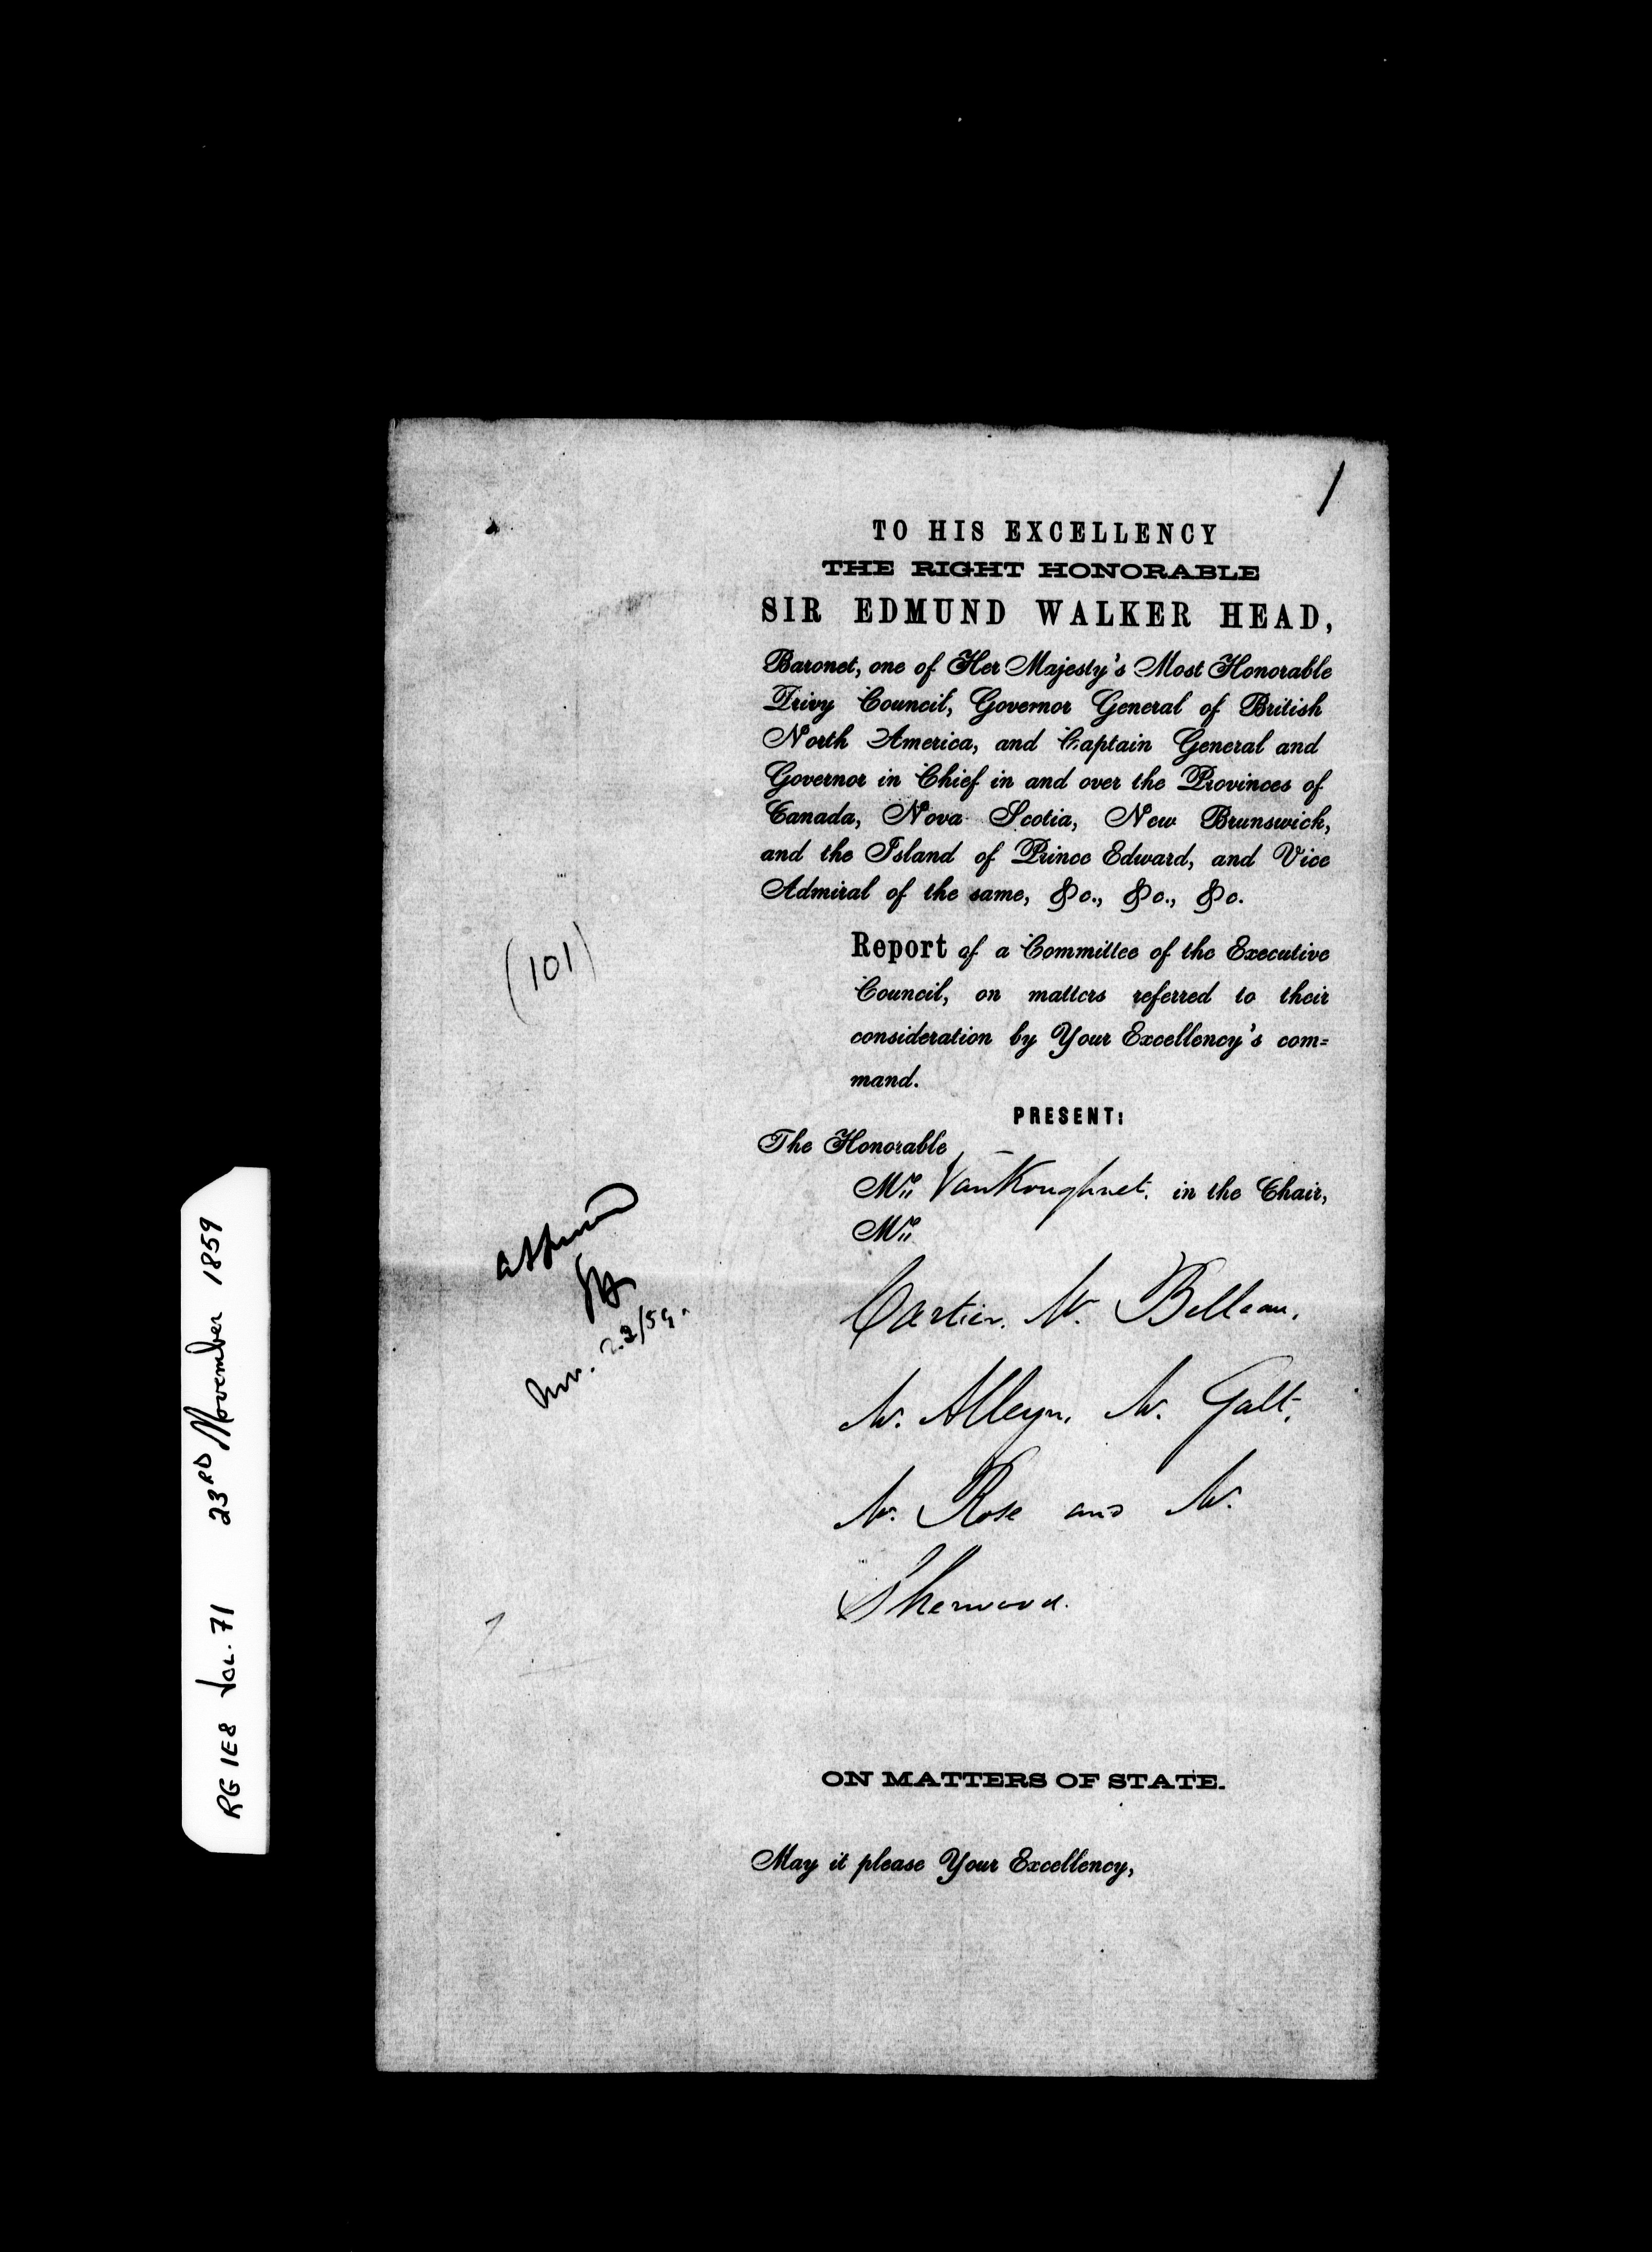 1
TO HIS EXCELLENCY
THE RIGHT HONORABLE
SIR EDMUND WALKER HEAD,
Baronet, one of Her Majesty's Most Honorable
Privy Council, Governor General of British
North America, and Captain General and
Governor in Chief in and over the Provinces of
Canada, Nova Scotia, New Brunswick,
and the Island of Prince Edward, and Vice
Admiral of the same, &c., &c., &c.
(101)
Report of a Committee of the Executive
Council, on matters referred to their
consideration by Your Excellency's com=
mand.
PRESENT:
The Honorable
Mr. VanKoughnet. in the Chair,
Mr.
Cartier. Mr. Belleau.
Mr. Alleyn. Mr. Galt.
Mr. Rose and Mr.
Sherwood.
Approved
EH
Nov. 23/59.
ON MATTERS OF STATE.
May it please Your Excellency,
RG 1E8 VOL. 71 23RD November 1859